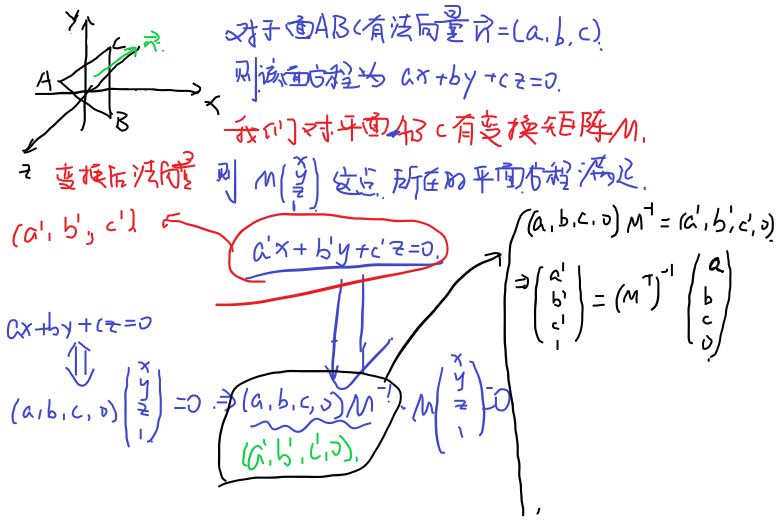 Y
C
n
A
B
X
Z
对于面ABC有法向量n=(a,b,c).
则该面方程为 ax+by+cz=0.
我们对平面ABC有变换矩阵M.
变换后法向量
(a',b',c')
则 M(x y z 1) 这点所在的平面方程满足.
a'x+b'y+c'z=0.
ax+by+cz=0
⇕
(a,b,c,0)(x y z 1)=0 ⇒ (a,b,c,0)M⁻¹·M(x y z 1)=0
(a',b',c',0).
(a,b,c,0)M⁻¹=(a',b',c',0)
⇒(a' b' c' 1)=(Mᵀ)⁻¹(a b c 0)